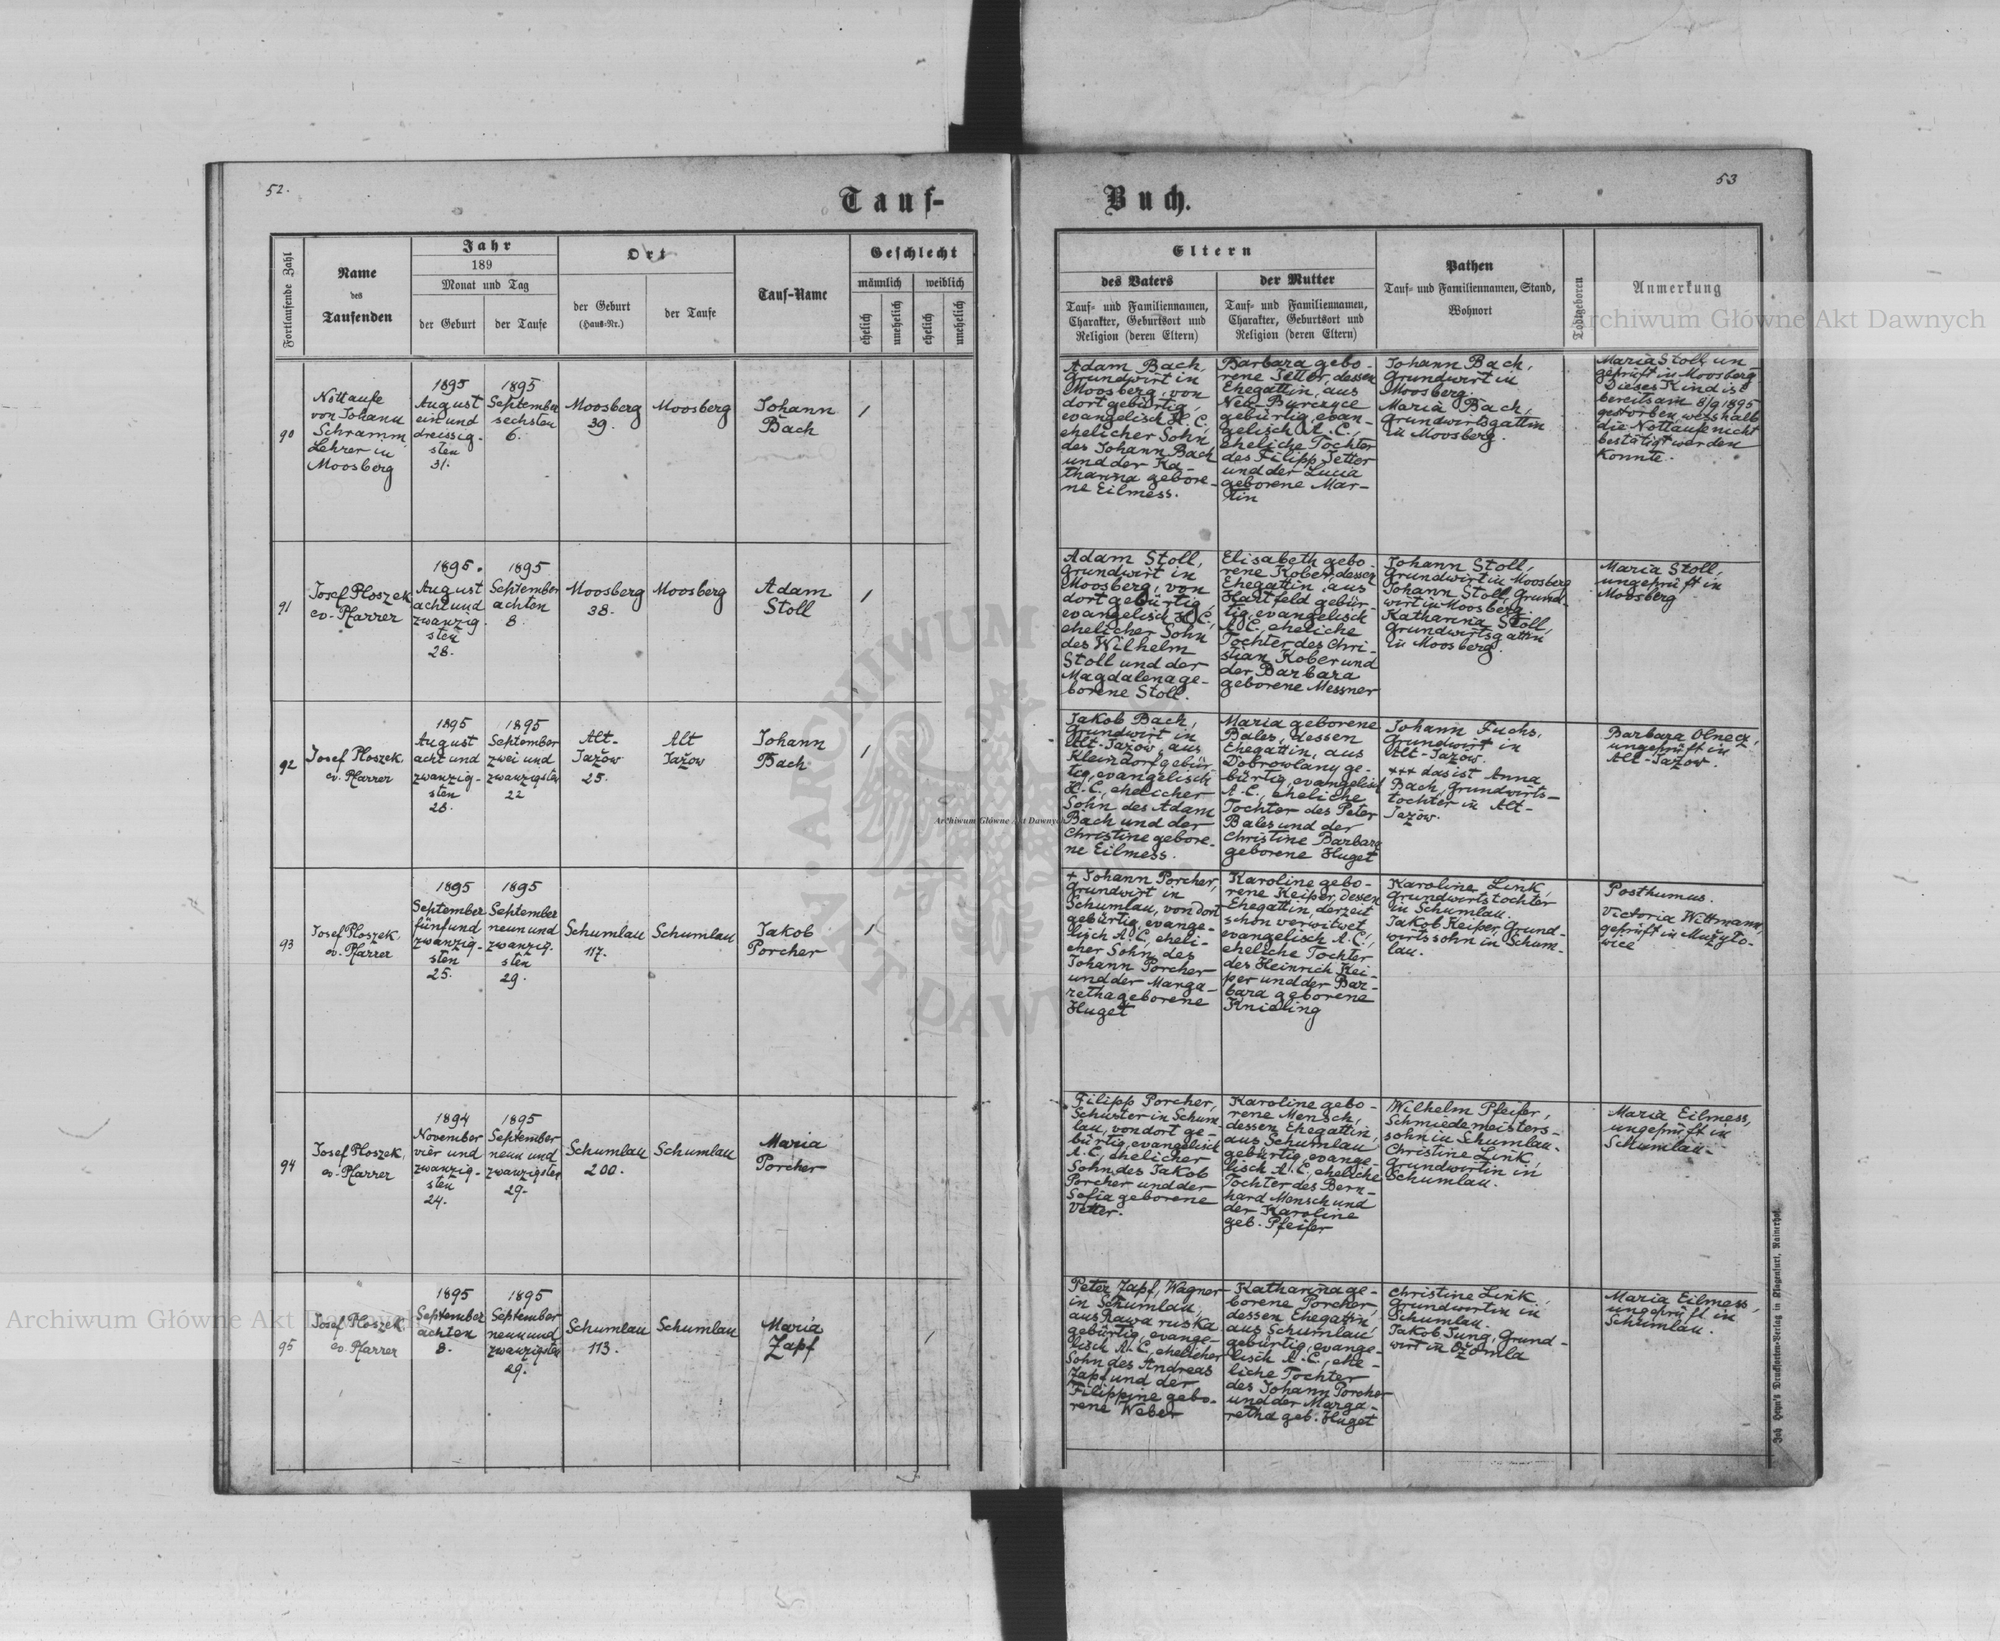 52.
53
Tauf-
Buch.
Fortlaufende Zahl
Name
des
Taufenden
Jahr
189
Monat und Tag
der Geburt
der Taufe
Ort
der Geburt
(Haus-Nr.)
der Taufe
Tauf-Name
Geschlecht
männlich
weiblich
ehelich
unehelich
ehelich
unehelich
Eltern
des Vaters
Tauf- und Familiennamen,
Charakter, Geburtsort und
Religion (deren Eltern)
der Mutter
Tauf- und Familiennamen,
Charakter, Geburtsort und
Religion (deren Eltern)
Pathen
Tauf- und Familiennamen, Stand,
Wohnort
Todtgeboren
Anmerkung
90
Nottaufe
von Johann
Schramm
Lehrer in
Moosberg
1895
August
ein und
dreissig-
sten
31.
1895
September
sechsten
6.
Moosberg
39.
Moosberg
Johann
Bach
/
Adam Bach,
Grundwirt in
Moosberg, von
dort gebürtig,
evangelisch H.C.,
ehelicher Sohn
des Johann Bach
und der Ka-
tharina gebore-
ne Eilmess.
Barbara gebo-
rene Jetter, dessen
Ehegattin, aus
Neu Burczyce
gebürtig, evan-
gelisch A.C.,
eheliche Tochter
des Filipp Jetter
und der Lucia
geborene Mar-
tin
Johann Bach,
Grundwirt in
Moosberg.
Maria Bach,
Grundwirtsgattin
in Moosberg.
Maria Stoll un
geprüft in Moosberg
Dieses Kind ist
bereits am 8/9 1895
gestorben, weshalb
die Nottaufe nicht
bestätigt werden
konnte.
91
Josef Ploszek
ev. Pfarrer
1895.
August
acht und
zwanzig-
sten
28.
1895
September
achten
8.
Moosberg
38.
Moosberg
Adam
Stoll
/
Adam Stoll,
Grundwirt in
Moosberg, von
dort gebürtig,
evangelisch H.C.,
ehelicher Sohn
des Wilhelm
Stoll und der
Magdalena ge-
borene Stoll.
Elisabeth gebo-
rene Kober, dessen
Ehegattin, aus
Hartfeld gebür-
tig, evangelisch
A.C., eheliche
Tochter des Chri-
stian Kober und
der Barbara
geborene Messner
Johann Stoll,
Grundwirt in Moosberg
Johann Stoll, Grund-
wirt in Moosberg.
Katharina Stoll,
Grundwirtsgattin
in Moosberg.
Maria Stoll,
ungeprüft in
Moosberg
92
Josef Ploszek,
ev. Pfarrer
1895
August
acht und
zwanzig-
sten
28.
1895
September
zwei und
zwanzigsten
22
Alt-
Jażów
25.
Alt
Jażow
Johann
Bach
/
Jakob Bach,
Grundwirt in
Alt-Jazów, aus
Kleindorf gebür-
tig, evangelisch
H.C., ehelicher
Sohn des Adam
Bach und der
Christine gebore-
ne Eilmess.
Maria geborene
Bales, dessen
Ehegattin, aus
Dobrowlany ge-
bürtig, evangelisch
A.C., eheliche
Tochter des Peter
Bales und der
Christine Barbara
geborene Huget
Johann Fuchs,
Grundwirt in
Alt-Jazow.
+++ das ist Anna
Bach, Grundwirts-
tochter in Alt-
Jazów.
Barbara Olnecz,
ungeprüft in
Alt-Jazow.
93
Josef Ploszek,
ev. Pfarrer
1895
September
fünf und
zwanzig-
sten
25.
1895
September
neun und
zwanzig-
sten
29.
Schumlau
117.
Schumlau
Jakob
Porcher
/
+ Johann Porcher,
Grundwirt in
Schumlau, von dort
gebürtig, evange-
lisch A.C., eheli-
cher Sohn des
Johann Porcher
und der Marga-
retha geborene
Huget
Karoline gebo-
rene Keiper, dessen
Ehegattin, derzeit
schon verwitwet,
evangelisch A.C.,
eheliche Tochter
des Heinrich Kei-
per und der Bar-
bara geborene
Knieling
Karoline Link,
Grundwirtstochter
in Schumlau.
Jakob Keiper, Grund-
wirtssohn in Schum-
lau.
Posthumus.
Victoria Wittmann,
geprüft in Mużyło-
wice
94
Josef Ploszek,
ev. Pfarrer
1894
November
vier und
zwanzig-
sten
24.
1895
September
neun und
zwanzigsten
29.
Schumlau
200.
Schumlau
Maria
Porcher
Filipp Porcher,
Schuster in Schum
lau, von dort ge-
bürtig, evangelisch
A.C., ehelicher
Sohn des Jakob
Porcher und der
Sofia geborene
Vetter.
Karoline gebo-
rene Mensch,
dessen Ehegattin,
aus Schumlau
gebürtig, evange-
lisch A.C., eheliche
Tochter des Bern-
hard Mensch und
der Karoline
geb. Pfeifer
Wilhelm Pfeifer,
Schmiedemeisters-
sohn in Schumlau.
Christine Link,
Grundwirtin in
Schumlau.
Maria Eilmess,
ungeprüft in
Schumlau-
95
Josef Ploszek
ev. Pfarrer
1895
September
achten
8.
1895
September
neun und
zwanzigsten
29.
Schumlau
113.
Schumlau
Maria
Zapf
/
Peter Zapf, Wagner
in Schumlau,
aus Rawa ruska
gebürtig, evange-
lisch A.C., ehelicher
Sohn des Andreas
Zapf und der
Filippine gebo-
rene Weber
Katharina ge-
borene Porcher,
dessen Ehegattin,
aus Schumlau
gebürtig, evange-
lisch A.C., ehe-
liche Tochter
des Johann Porcher
und der Marga-
retha geb. Huget
Christine Link,
Grundwirtin in
Schumlau.
Jakob Jung, Grund-
wirt in Ożomla
Maria Eilmess,
ungeprüft in
Schumlau.
Joh. Heyn's Drucksorten-Verlag in Klagenfurt, Rainerhof.
Archiwum Główne Akt Dawnych
Archiwum Główne Akt Dawnych
Archiwum Główne Akt Dawnych